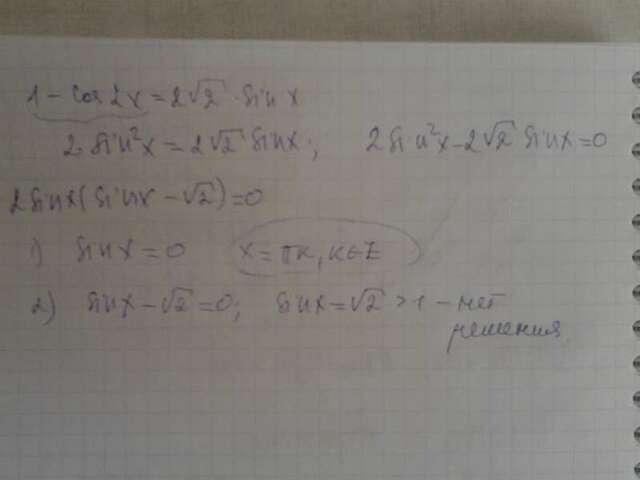 1 - cos 2x = 2√2 · sin x
2 · sin²x = 2√2 sin x; 2 sin²x - 2√2 sin x = 0
2 sin x (sin x - √2) = 0
1) sin x = 0 x = πк, к ∈ Z
2) sin x - √2 = 0; sin x = √2 > 1 - нет
решения.